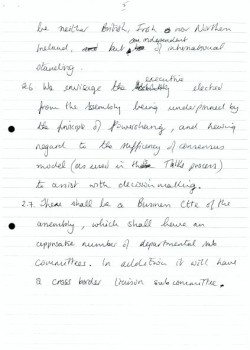 5
be neither British, Irish nor Northern
an independent
Ireland, but of international
standing.
executive
2.6. We envisage the elected
from the Assembly being underpinned by
the principle of powersharing, and having
regard to the sufficiency of consensus
model (as used in the Talks process)
to assist with decisionmaking.
2.7. There shall be a Business Cttee of the
assembly, which shall have an
appropriate number of departmental sub
committees. In addition it will have
a cross border liaison subcommittee.